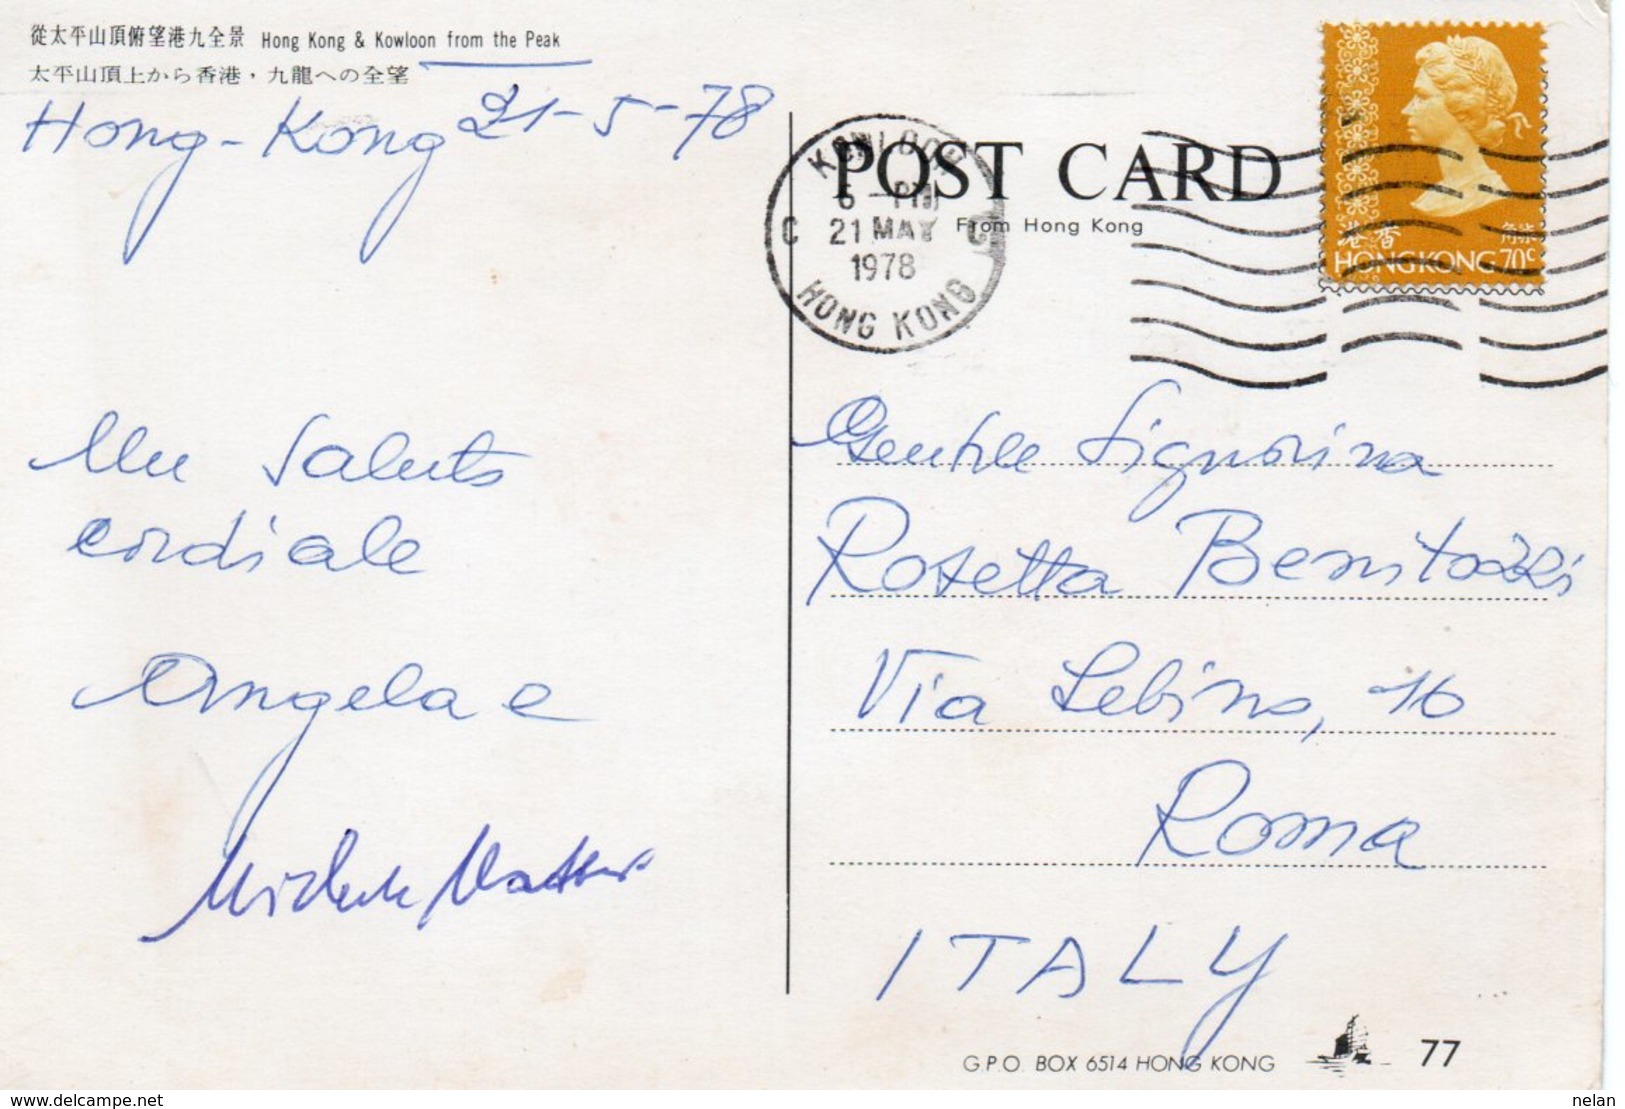 從太平山頂俯望港九全景 Hong Kong & Kowloon from the Peak
太平山頂上から香港・九龍への全望
Hong-Kong 21-5-78
Un saluto
cordiale
Angela e
POST CARD
From Hong Kong
KOWLOON
6 - PM
C 21 MAY C
1978
HONG KONG
港香 角柒
HONG KONG 70c
Gentile Signorina
Rosetta
Via Sebino, 16
Roma
ITALY
G.P.O. BOX 6514 HONG KONG
77
www.delcampe.net
nelan